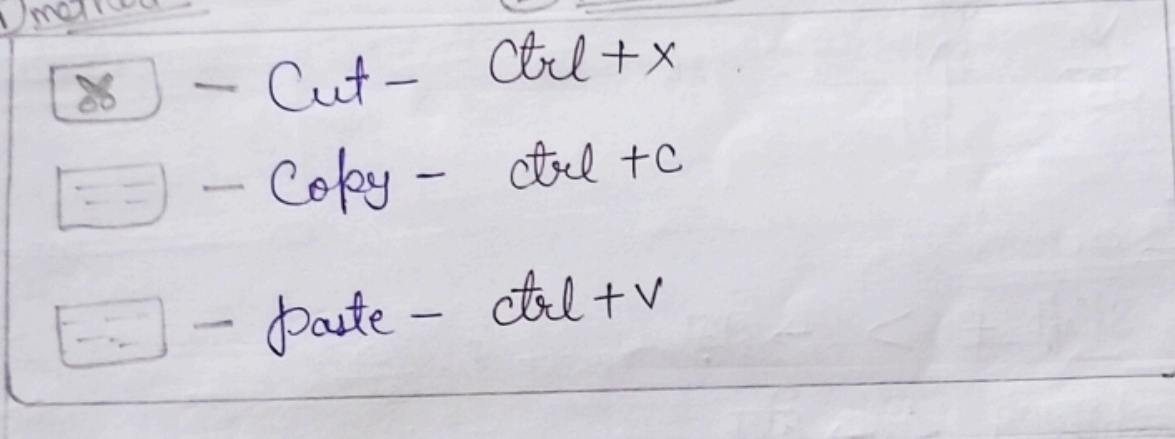 Cut - Ctrl + X
- Copy - ctrl + C
- paste - ctrl + V